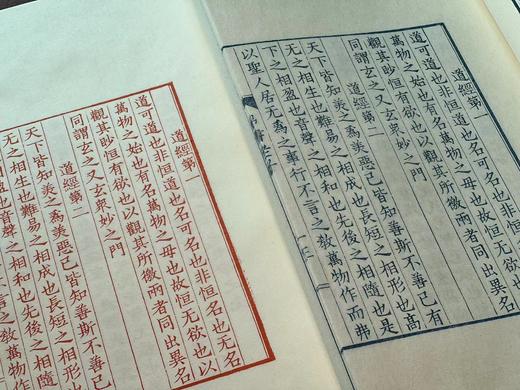 道經第一
道可道也非恒道也名可名也非恒名也无名
萬物之始也有名萬物之母也故恒无欲也以
觀其眇恒有欲也以觀其所徼兩者同出異名
同謂玄之又玄衆眇之門
道經第二
天下皆知美之為美惡已皆知善斯不善已有
无之相生也難易之相成也長短之相形也高
下之相盈也音聲之相和也先後之相隨也是
以聖人居无為之事行不言之教萬物作而弗
道經第一
道可道也非恒道也名可名也非恒名也无名
萬物之始也有名萬物之母也故恒无欲也以
觀其眇恒有欲也以觀其所徼兩者同出異名
同謂玄之又玄衆眇之門
道經第二
天下皆知美之為美惡已皆知善斯不善已
无之相生也難易之相成也長短之相形
相盈也音聲之相和也先後之相隨
不言之教萬物